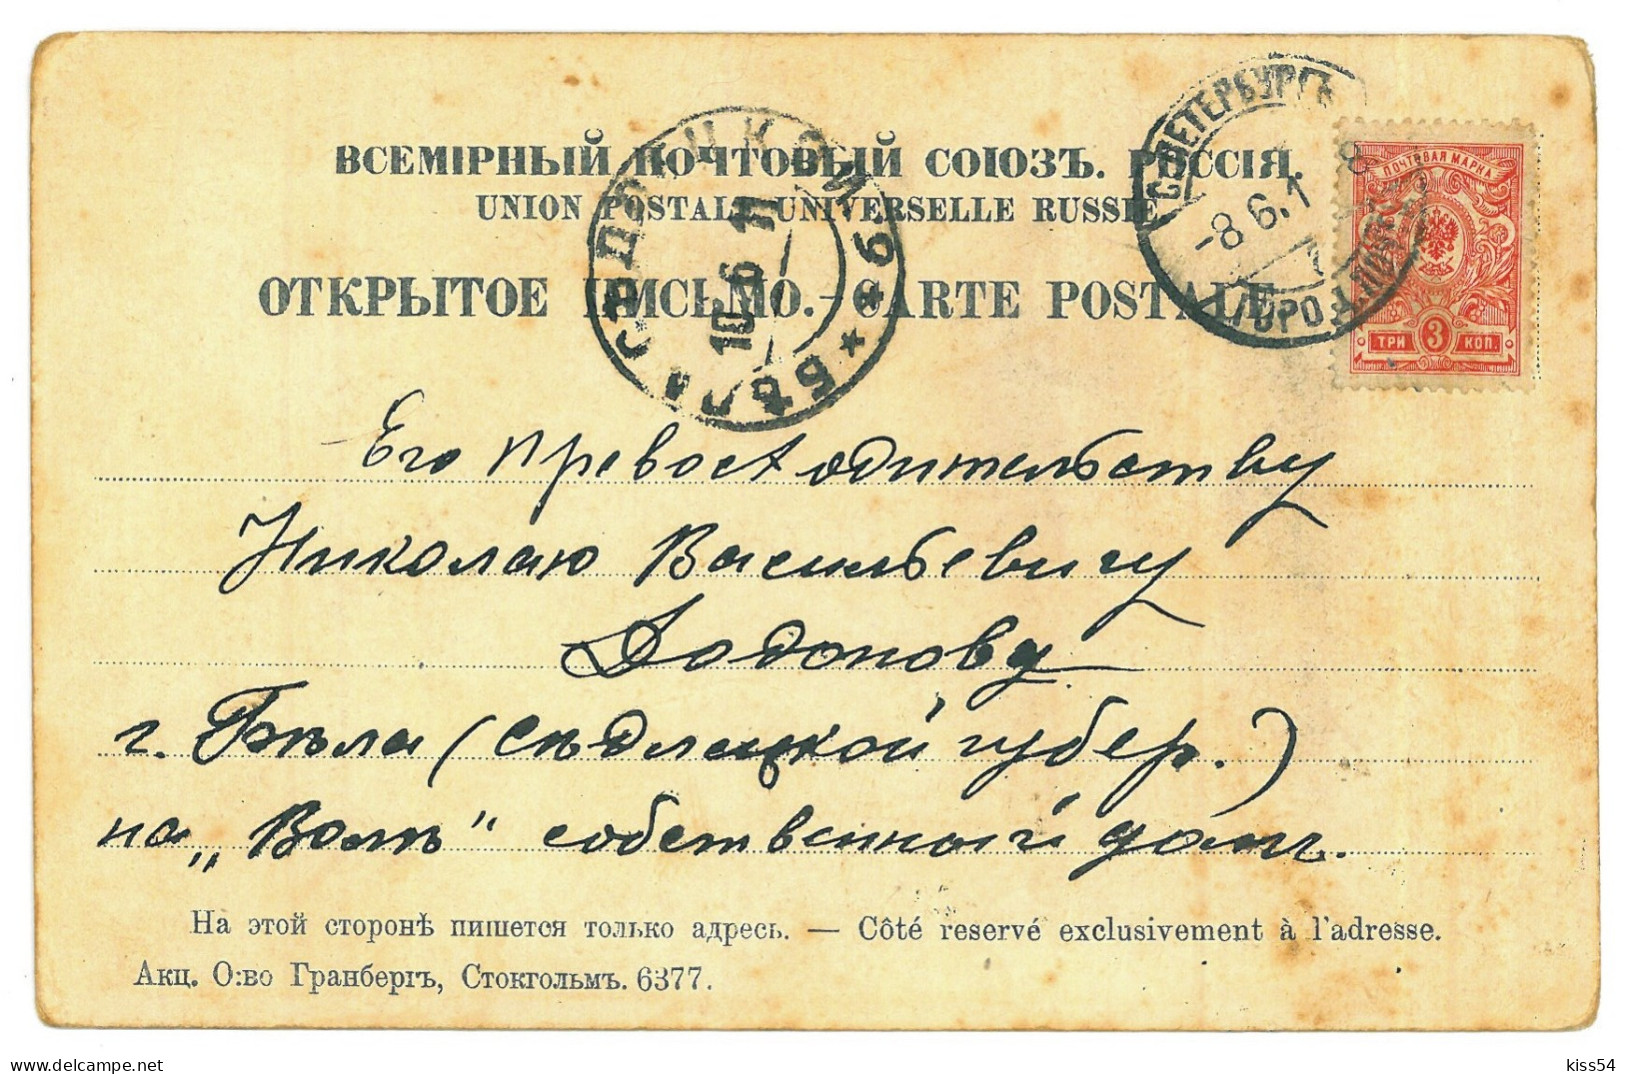 ВСЕМІРНЫЙ ПОЧТОВЫЙ СОЮЗЪ. РОССІЯ.
UNION POSTALE UNIVERSELLE RUSSIE
ОТКРЫТОЕ ПИСЬМО. — CARTE POSTALE
С.ПЕТЕРБУРГЪ
-8.6.1
ПОЧТОВАЯ МАРКА
ТРИ 3 КОП.
БѢЛА СѢДЛЕЦКОЙ Г.
10 6 11
Его Превосходительству
Николаю Васильевичу
Додонову
г. Бѣла (Сѣдлецкой губер.)
на „Волѣ" собственный домъ.
На этой сторонѣ пишется только адресъ. — Côté reservé exclusivement à l'adresse.
Акц. О:во Гранбергъ, Стокгольмъ. 6377.
kiss54